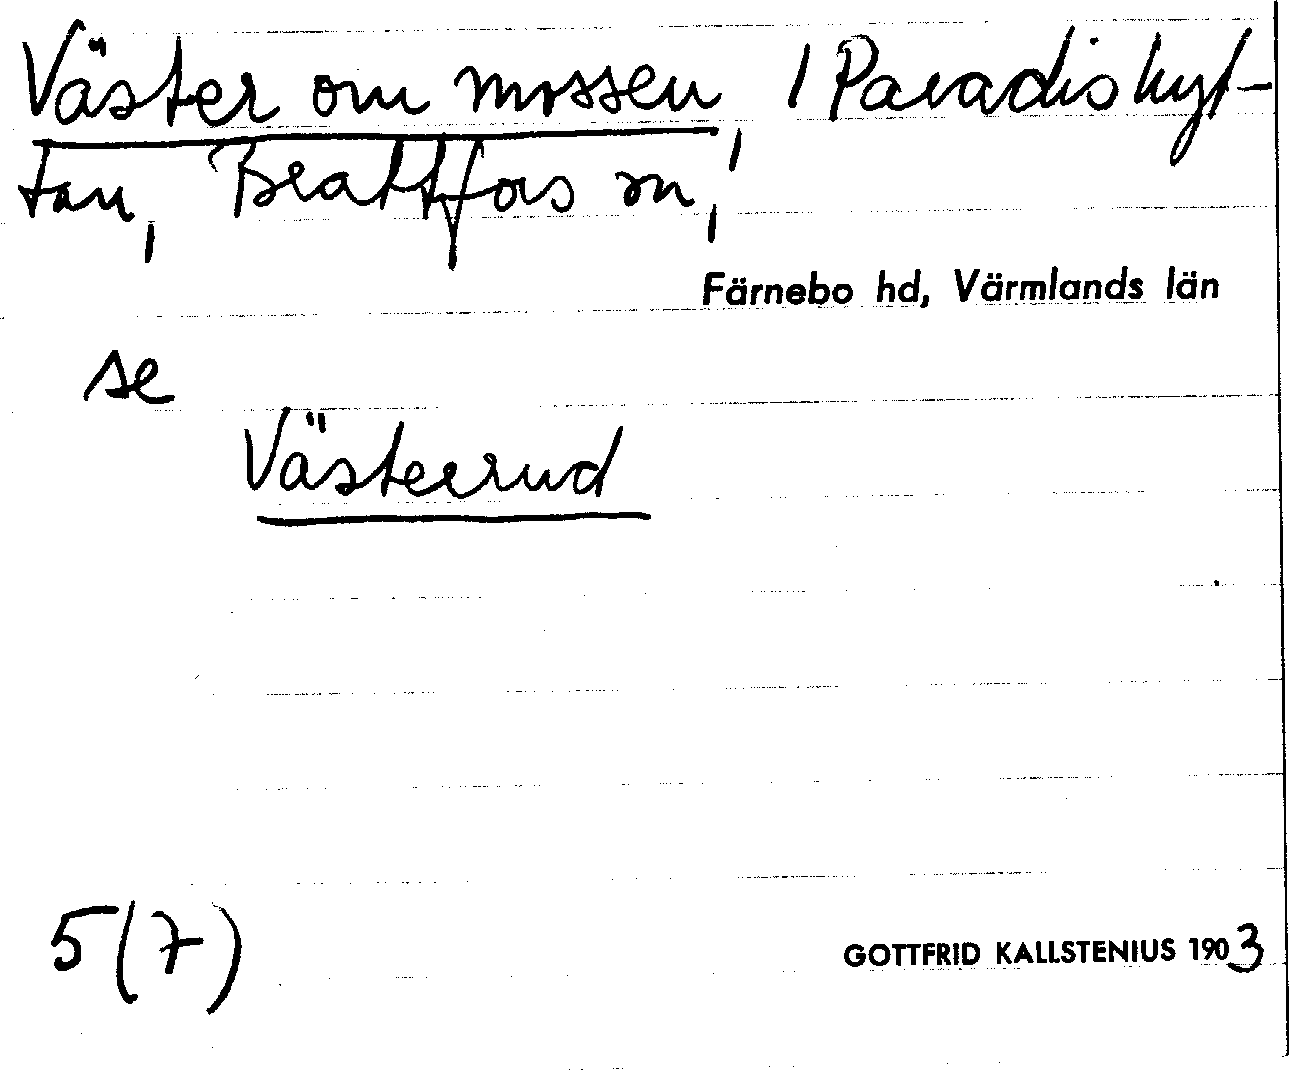 Väster om mossen, / Paradishyt-
tan, Brattfors sn,
Färnebo hd, Värmlands län
se
Västerrud
5(7)
GOTTFRID KALLSTENIUS 1903